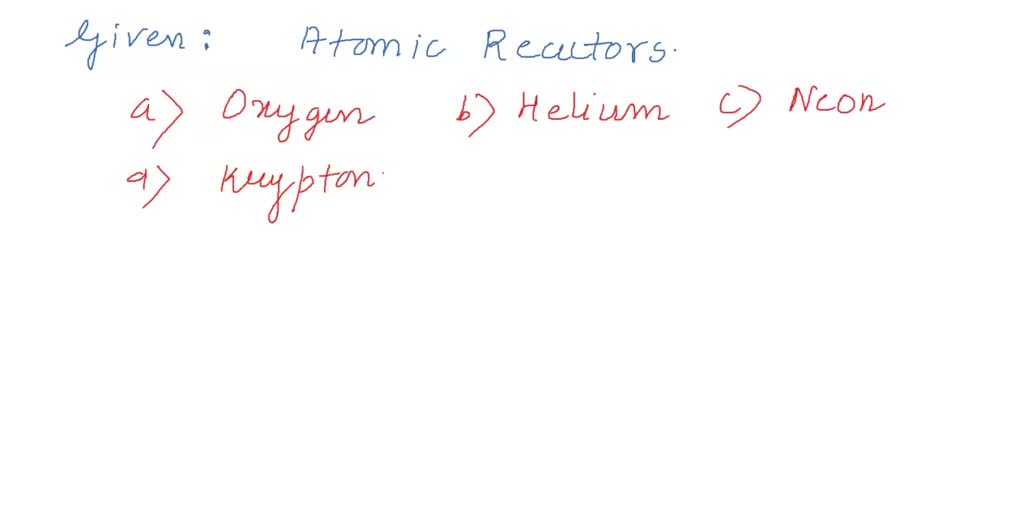 Given: Atomic Reactors.
a) Oxygen b) Helium c) Neon
d) Krypton